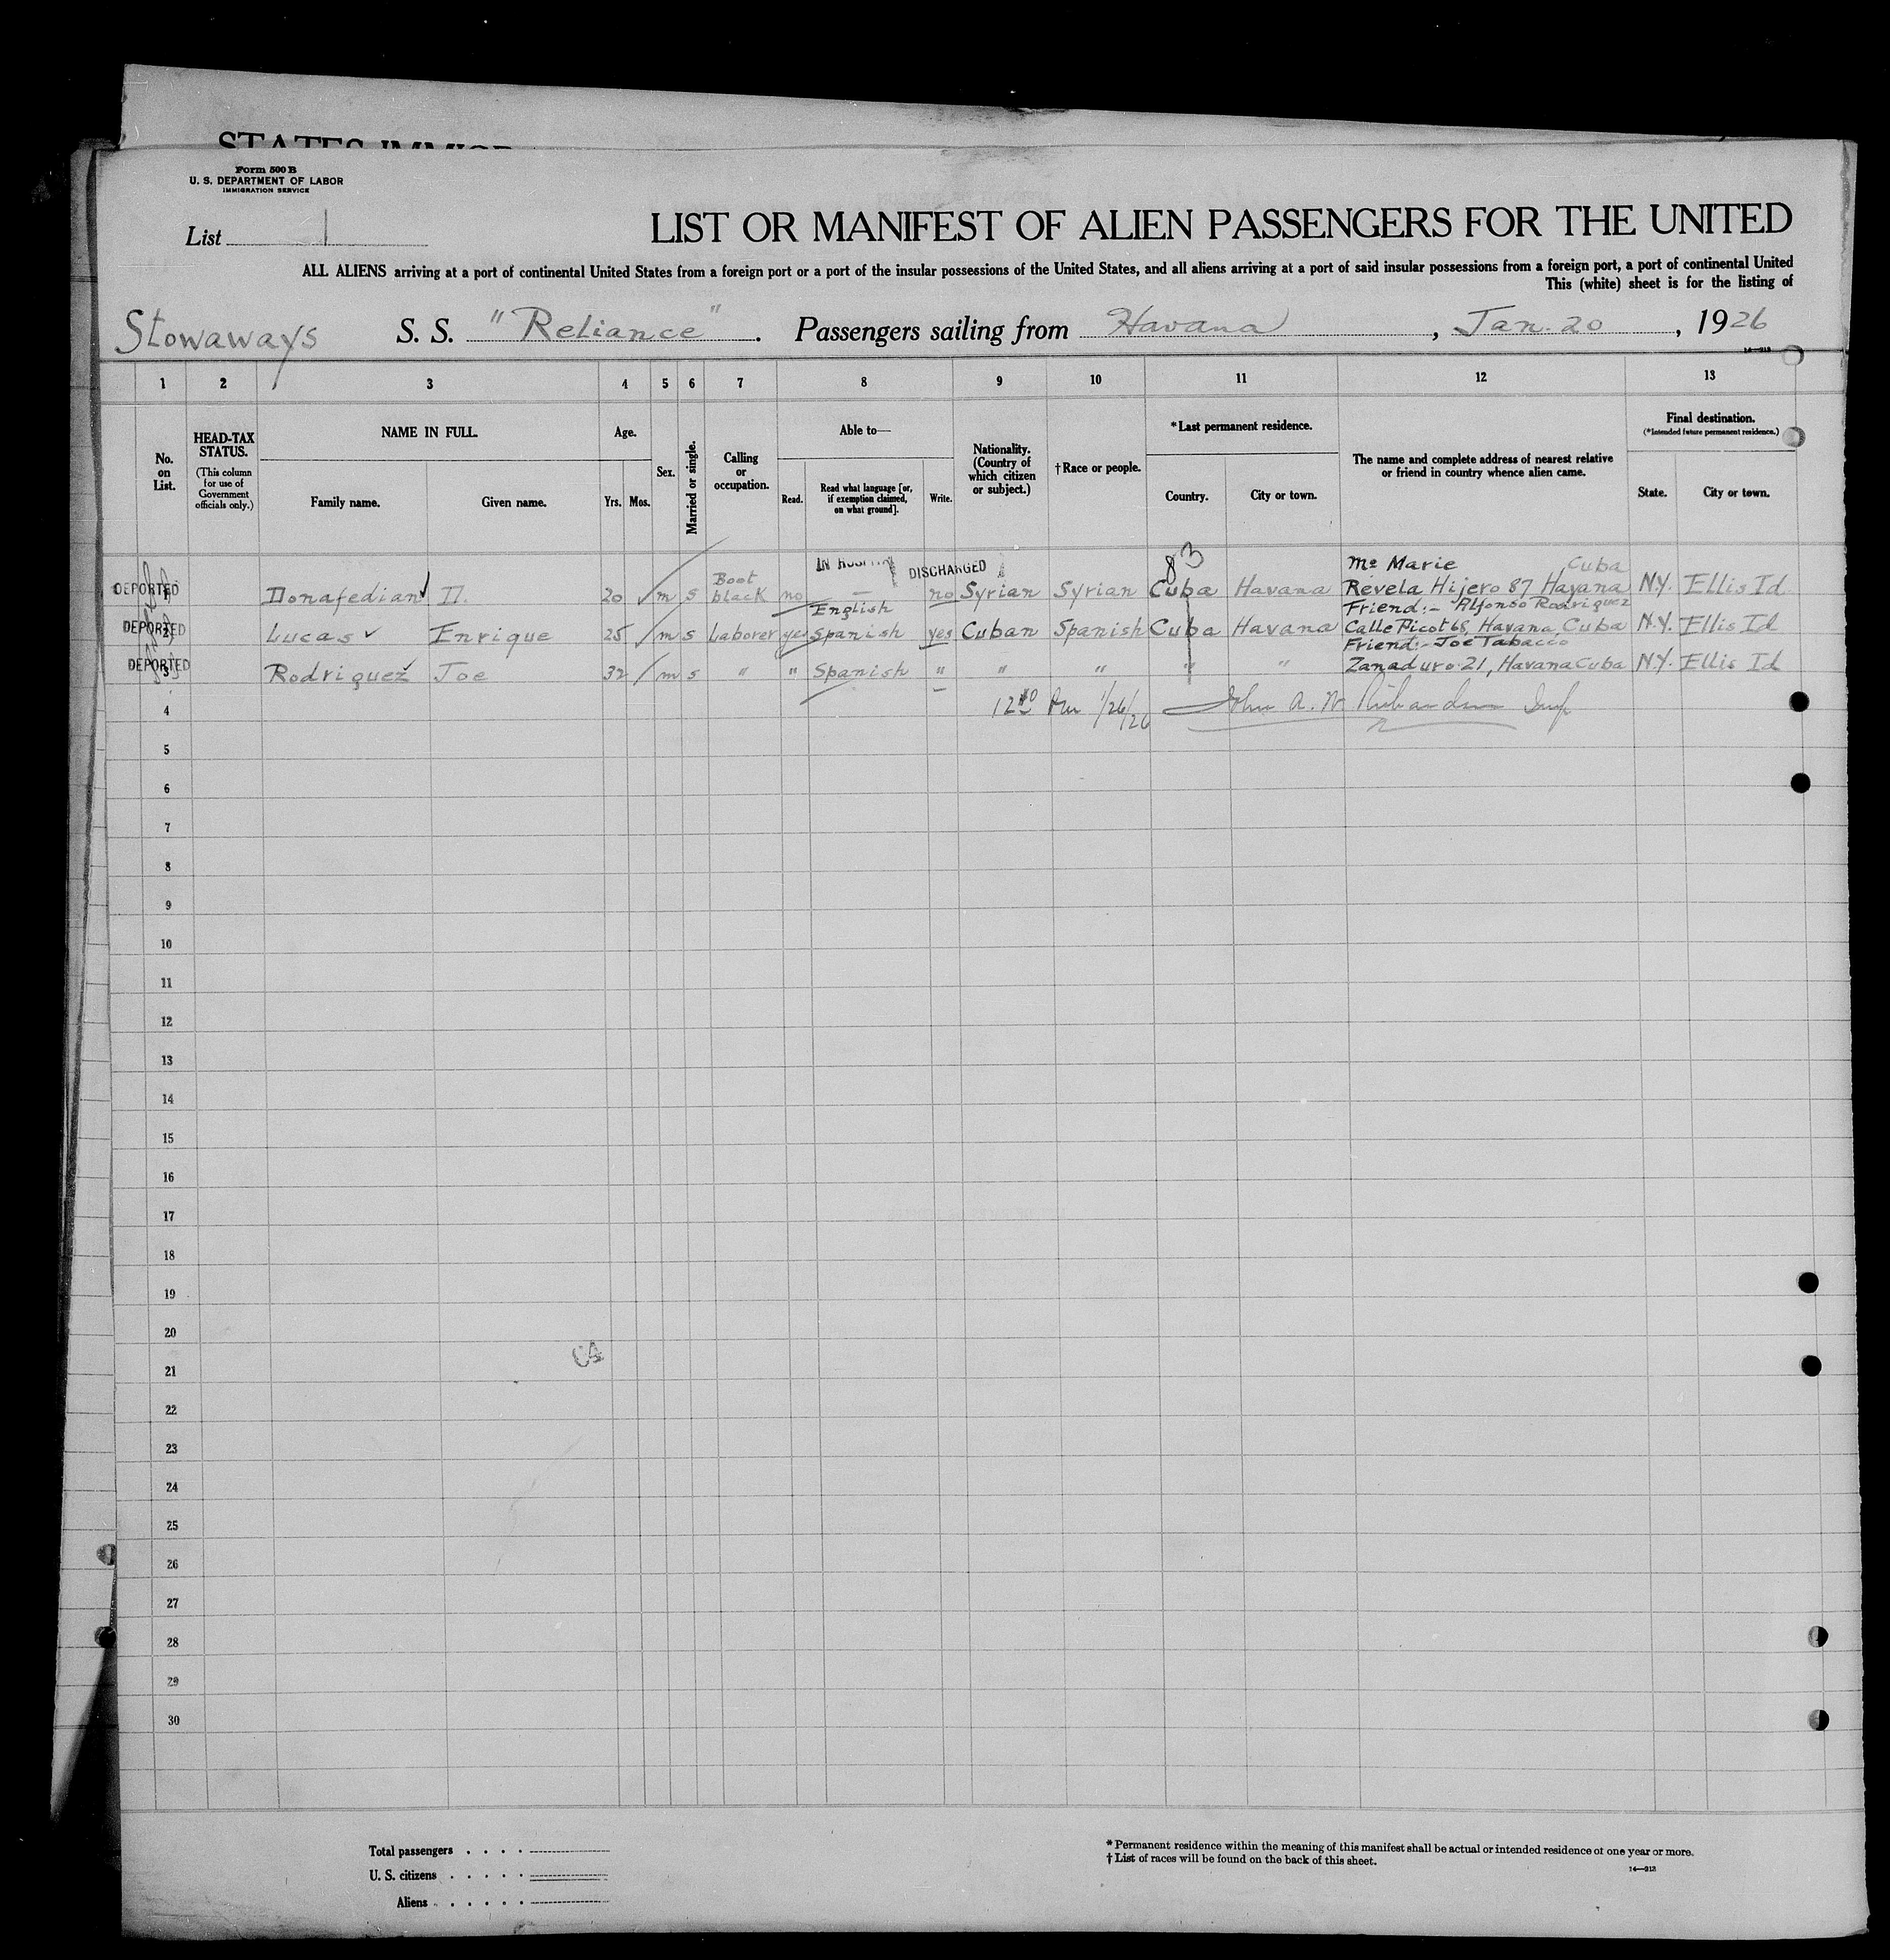 STATES IMMIGR
Form 500 B
U. S. DEPARTMENT OF LABOR
IMMIGRATION SERVICE
List 1
LIST OR MANIFEST OF ALIEN PASSENGERS FOR THE UNITED
ALL ALIENS arriving at a port of continental United States from a foreign port or a port of the insular possessions of the United States, and all aliens arriving at a port of said insular possessions from a foreign port, a port of continental United
This (white) sheet is for the listing of
Stowaways S. S. "Reliance". Passengers sailing from Havana, Jan. 20, 1926
14—213
1 2 3 4 5 6 7 8 9 10 11 12 13
No. on List.
HEAD-TAX STATUS.
(This column for use of Government officials only.)
NAME IN FULL.
Family name. Given name.
Age.
Yrs. Mos.
Sex.
Married or single.
Calling or occupation.
Able to—
Read. Read what language [or, if exemption claimed, on what ground]. Write.
Nationality. (Country of which citizen or subject.)
†Race or people.
*Last permanent residence.
Country. City or town.
The name and complete address of nearest relative or friend in country whence alien came.
Final destination.
(*Intended future permanent residence.)
State. City or town.
IN HOSPITAL DISCHARGED 83
Mc Marie Cuba
DEPORTED 1 Donafedian D. 20 m s Boot black no — no Syrian Syrian Cuba Havana Revela Hijero 87 Havana N.Y. Ellis Id.
English Friend:- Alfonso Rodriguez
DEPORTED 2 Lucas Enrique 25 m s Laborer yes Spanish yes Cuban Spanish Cuba Havana Calle Picot 68, Havana Cuba N.Y. Ellis Id
Friend:- Joe Tabacco
DEPORTED 3 Rodriguez Joe 32 m s " " Spanish " " " " " Zanaduro 21, Havana Cuba N.Y. Ellis Id
4 1/26/26 John A. W. Richardson Insp
5
6
7
8
9
10
11
12
13
14
15
16
17
18
19
20
21
22
23
24
25
26
27
28
29
30
Total passengers . . . .
U. S. citizens . . . . .
Aliens . . . . . .
* Permanent residence within the meaning of this manifest shall be actual or intended residence of one year or more.
† List of races will be found on the back of this sheet.
14—213